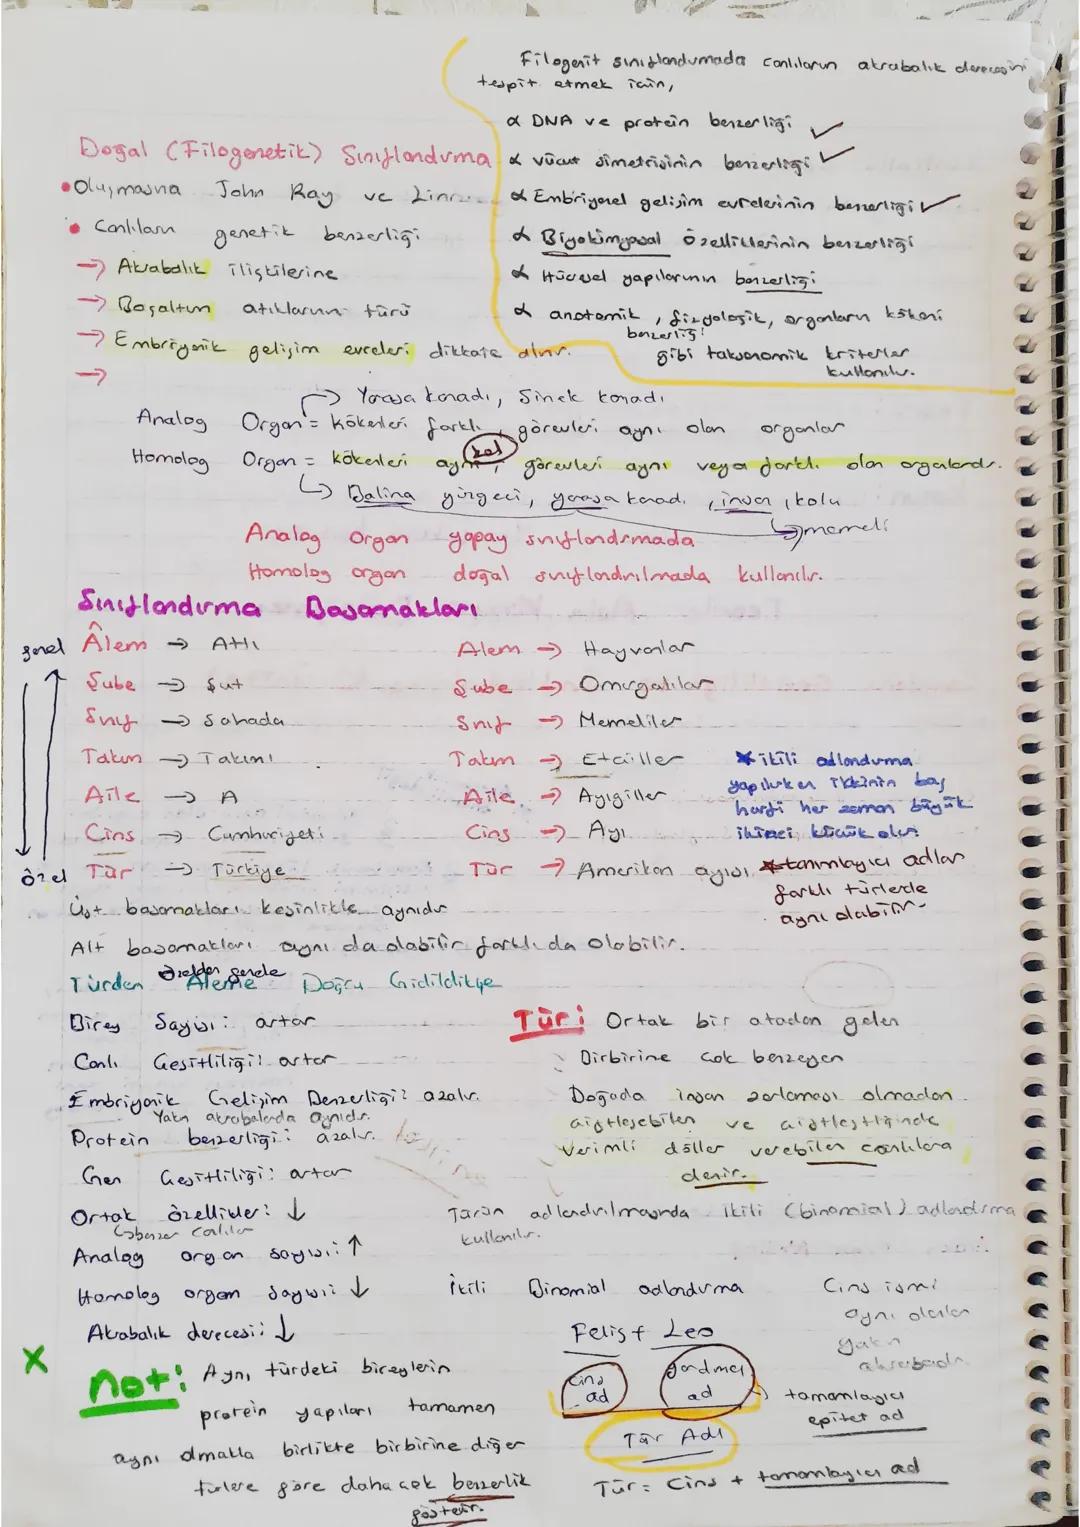 Filogenit sınıflandırmada canlıların akrabalık derecesini
tespit etmek için,
α DNA ve protein benzerliği ✓
α vücut simetrisinin benzerliği ✓
α Embriyonel gelişim evrelerinin benzerliği ✓
α Biyokimyasal özelliklerinin benzerliği
α Hücresel yapılarının benzerliği
α anatomik, fizyolojik, organların kökeni
benzerliği
gibi taksonomik kriterler
kullanılır.
Doğal (Filogenetik) Sınıflandırma
• Oluşmasına John Ray ve Linne
• Canlıların genetik benzerliği
→ Akrabalık ilişkilerine
→ Boşaltım atıklarının türü
→ Embriyonik gelişim evreleri dikkate alınır.
→
→ Yarasa kanadı, Sinek kanadı
Analog Organ = kökenleri farklı, görevleri aynı olan organlar
kol
Homolog Organ = kökenleri aynı, görevleri aynı veya farklı olan organlardır.
→ Balina yüzgeci, yarasa kanadı, insan kolu
→ memeli
Analog organ yapay sınıflandırmada
Homolog organ doğal sınıflandırılmada kullanılır.
Sınıflandırma Basamakları
genel
Âlem → Atlı
Şube → Şut
Sınıf → Sahada
Takım → Takımı
Aile → A
Cins → Cumhuriyeti
Tür → Türkiye
özel
Alem → Hayvanlar
Şube → Omurgalılar
Sınıf → Memeliler
Takım → Etçiller
Aile → Ayıgiller
Cins → Ayı
Tür → Amerikan ayısı
* ikili adlandırma
yapılırken ilkinin baş
harfi her zaman büyük
ikinci küçük olur
* tanımlayıcı adlar
farklı türlerde
aynı olabilir.
Üst basamakları kesinlikle aynıdır
Alt basamakları aynı da olabilir farklı da olabilir.
özelden genele
Türden Aleme Doğru Gidildikçe
Birey Sayısı: artar
Canlı Çeşitliliği: artar
Embriyonik Gelişim Benzerliği: azalır.
Yakın akrabalarda aynıdır.
Protein benzerliği: azalır.
Gen Çeşitliliği: artar
Ortak özellikler: ↓
→ benzer canlılar
Analog organ sayısı: ↑
Homolog organ sayısı: ↓
Akrabalık derecesi: ↓
Tür: Ortak bir atadan gelen
Birbirine çok benzeyen
Doğada insan zorlaması olmadan
çiftleşebilen ve çiftleştiğinde
verimli döller verebilen canlılara
denir.
Türün adlandırılmasında ikili (binomial) adlandırma
kullanılır.
İkili Binomial adlandırma
Felis + Leo
cins
ad
yardımcı
ad
Tür Adı
→ tamamlayıcı
epitet ad
Tür = Cins + tamamlayıcı ad
Cins ismi
aynı olanlar
yakın
akrabadır.
X
not: Aynı türdeki bireylerin
protein yapıları tamamen
aynı olmakla birlikte birbirine diğer
türlere göre daha çok benzerlik
gösterir.